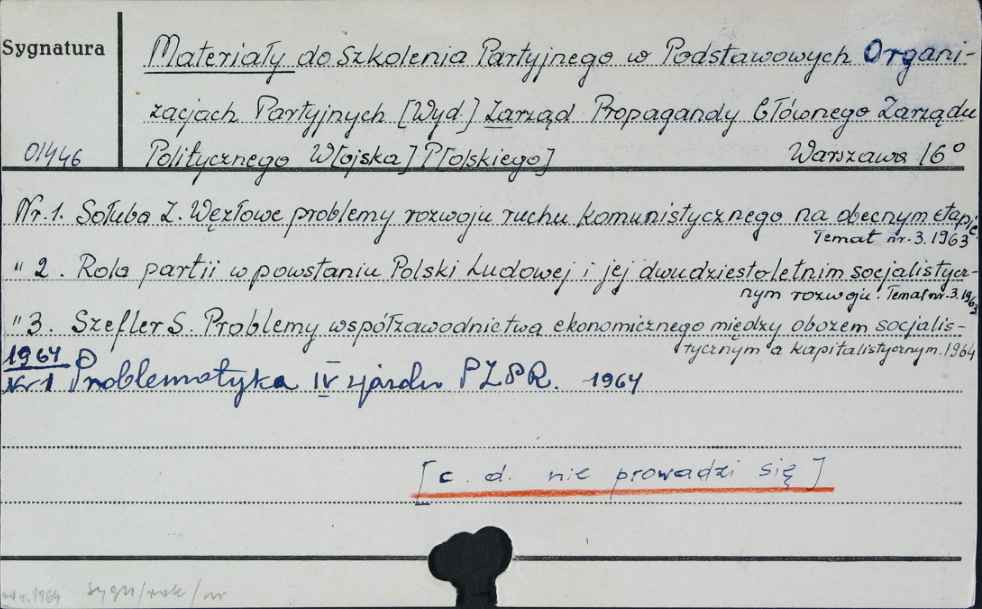 Sygnatura
Materiały do Szkolenia Partyjnego w Podstawowych Organi-
zacjach Partyjnych [Wyd.] Zarząd Propagandy Głównego Zarządu
01446
Politycznego W[ojska] P[olskiego] Warszawa 16°
Nr.1. Sołuba Z. Węzłowe problemy rozwoju ruchu komunistycznego na obecnym etapie
Temat nr.3.1963
" 2. Rola partii w powstaniu Polski Ludowej i jej dwudziestoletnim socjalistycz-
nym rozwoju. Temat nr.3.1963
" 3. Szefler S. Problemy współzawodnictwa ekonomicznego między obozem socjalis-
tycznym a kapitalistycznym.1964
1964
Nr 1 Problematyka IV zjazdu PZPR. 1964
[c. d. nie prowadzi się]
1964 sygn/rok/nr